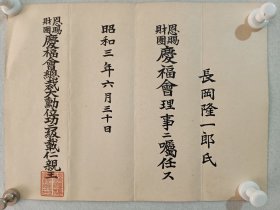 長岡隆一郎氏
恩賜
財團 慶福會理事ニ囑任ス
昭和三年六月三十日
恩賜
財團 慶福會總裁大勳位功二級載仁親王